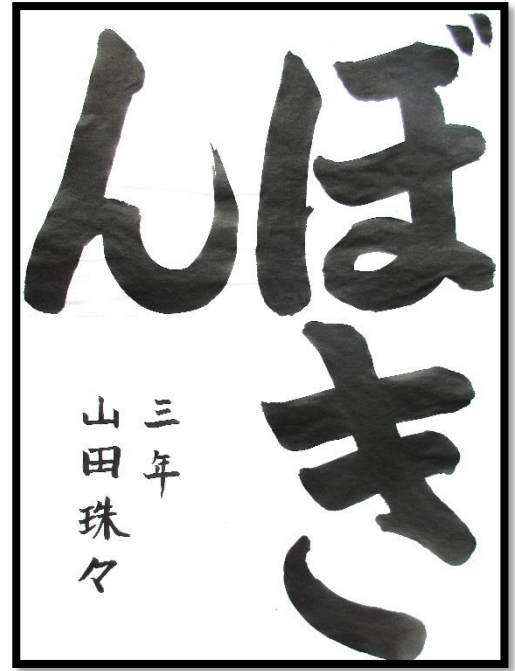 ぼき
ん
三年
山田珠々